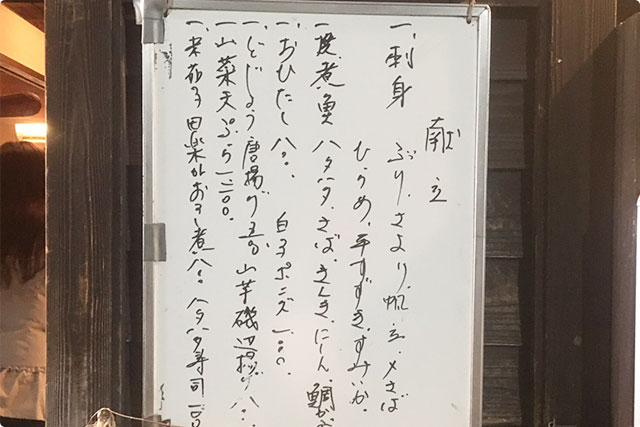 献立
一、刺身 ぶり、さより、帆立、〆さば
ひらめ、平すずき、すみいか、
一、煮魚 ハタハタ、さば、きんき、にしん、鯛かぶ
一、おひたし 八〇〇 白子ポンズ 一、〇〇〇
一、どじょう唐揚げ 山芋磯辺揚げ 八〇〇
一、山菜天ぷら 一二〇〇
一、 田楽 おろし煮 八〇〇 ハタハタ寿司